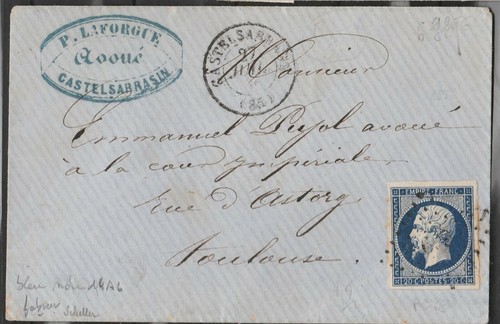 P. LAFORGUE
Avoué
CASTELSARRASIN
CASTELSARRASIN
27
(85)
Monsieur
Emmanuel Pujol avoué
à la cour impériale,
rue d'Astorg
Toulouse.
EMPIRE FRANC
20 C POSTES 20 C
bleu noir 14A6
Scheller